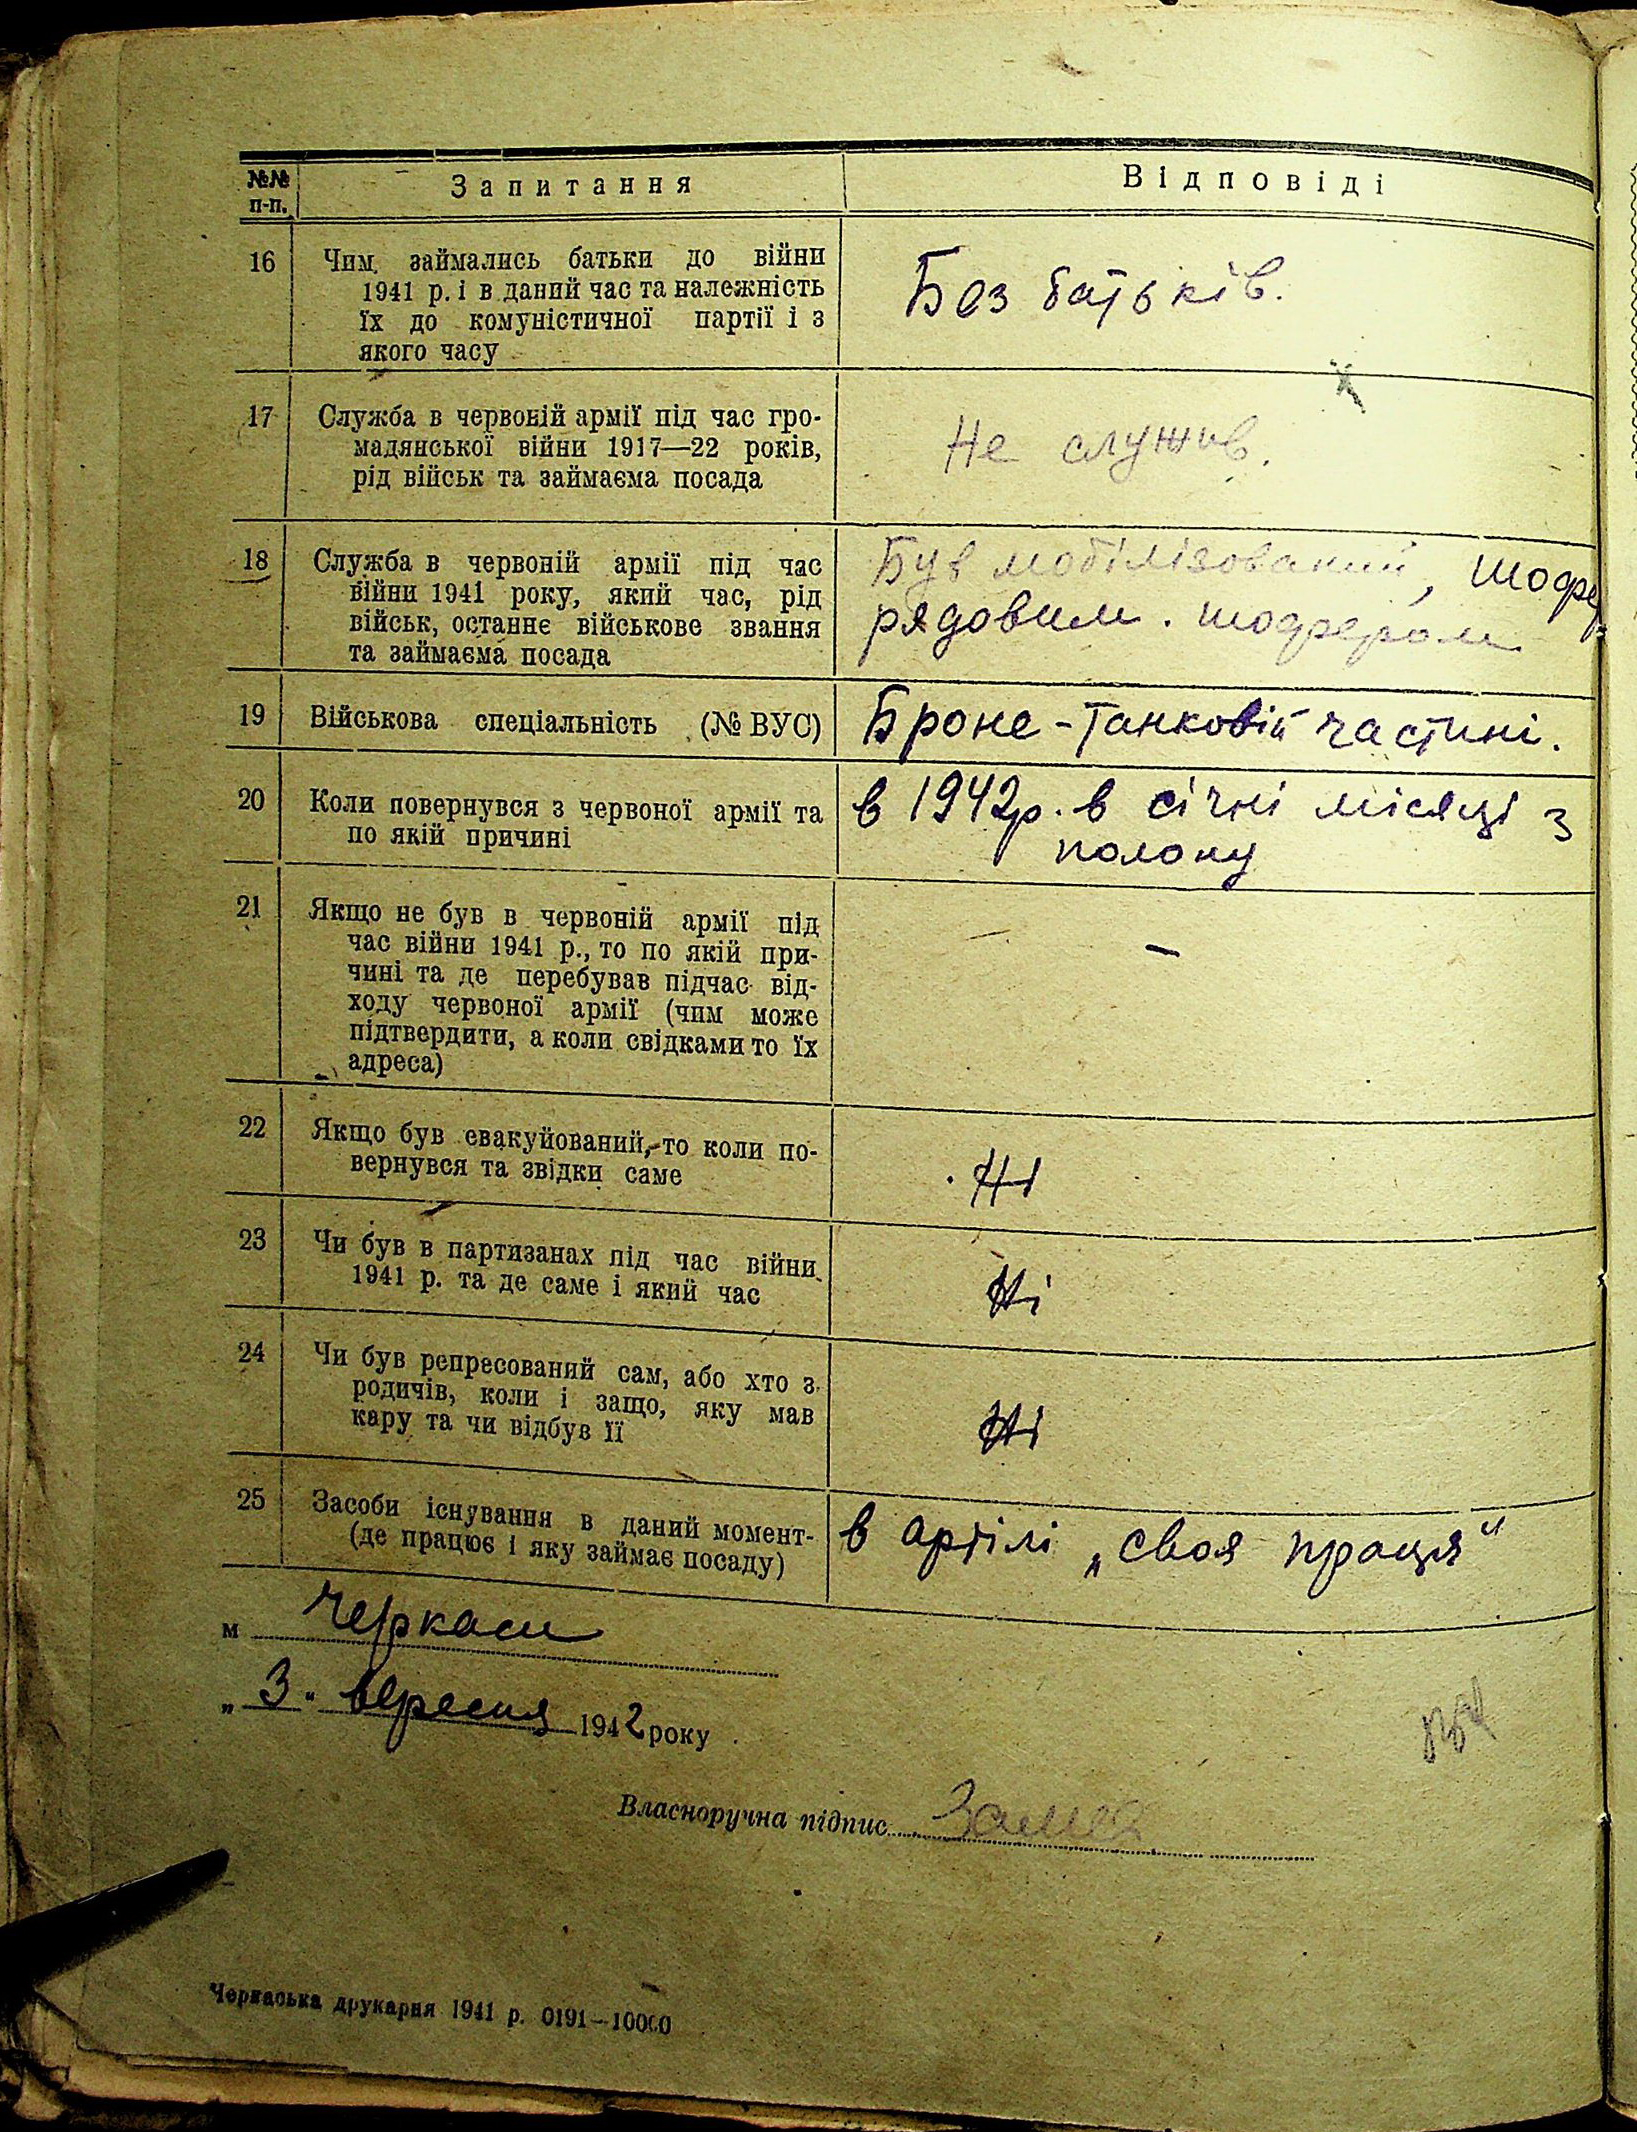 №№ п-п.
Запитання
Відповіді
16
Чим займались батьки до війни
1941 р. і в даний час та належність
їх до комуністичної партії і з
якого часу
Без батьків.
17
Служба в червоній армії під час гро-
мадянської війни 1917—22 років,
рід військ та займаєма посада
Не служив.
18
Служба в червоній армії під час
війни 1941 року, який час, рід
військ, останнє військове звання
та займаєма посада
Був мобілізований, шофер
рядовим. шофером
19
Військова спеціальність (№ ВУС)
Броне-танковій частині.
20
Коли повернувся з червоної армії та
по якій причині
в 1942р. в січні місяці з
полону
21
Якщо не був в червоній армії під
час війни 1941 р., то по якій при-
чині та де перебував підчас від-
ходу червоної армії (чим може
підтвердити, а коли свідками то їх
адреса)
—
22
Якщо був евакуйований, то коли по-
вернувся та звідки саме
Ні
23
Чи був в партизанах під час війни
1941 р. та де саме і який час
Ні
24
Чи був репресований сам, або хто з
родичів, коли і защо, яку мав
кару та чи відбув її
Ні
25
Засоби існування в даний момент-
(де працює і яку займає посаду)
в артілі „своя праця"
м Черкаси
„3" вересня 1942 року
Власноручна підпис
Черкаська друкарня 1941 р. 0191—10000